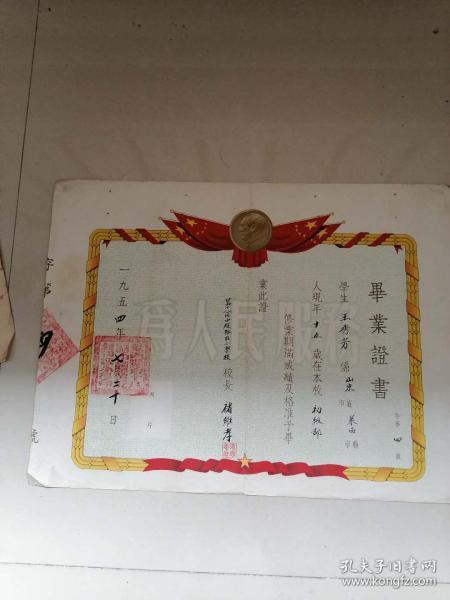 畢業證書
字第四號
學生王秀芳係山東省萊西縣市
人現年十五歲在本校初級部
修業期滿成績及格准予畢
業此證
校長
一九五四年七月二十日
為人民服務
字第
號
孔夫子旧书网
www.kongfz.com